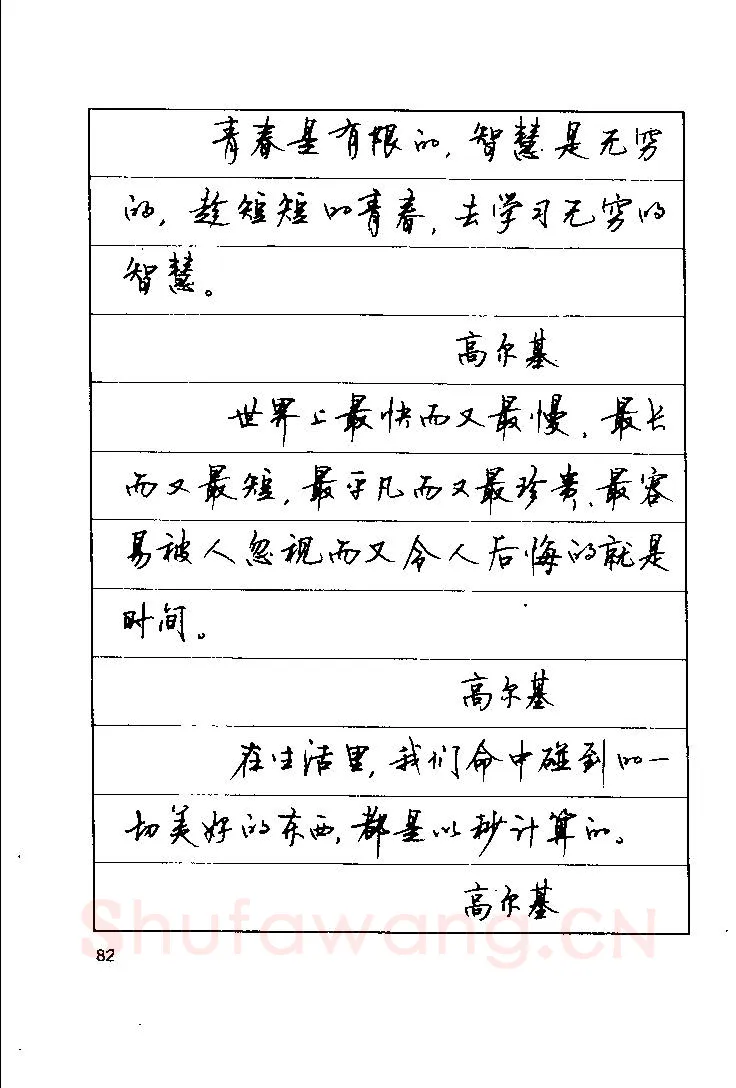 青春是有限的,智慧是无穷
的,趁短短的青春,去学习无穷的
智慧。
高尔基
世界上最快而又最慢,最长
而又最短,最平凡而又最珍贵、最容
易被人忽视而又令人后悔的就是
时间。
高尔基
在生活里,我们命中碰到的一
切美好的东西,都是以秒计算的。
高尔基
Shufawang.CN
82